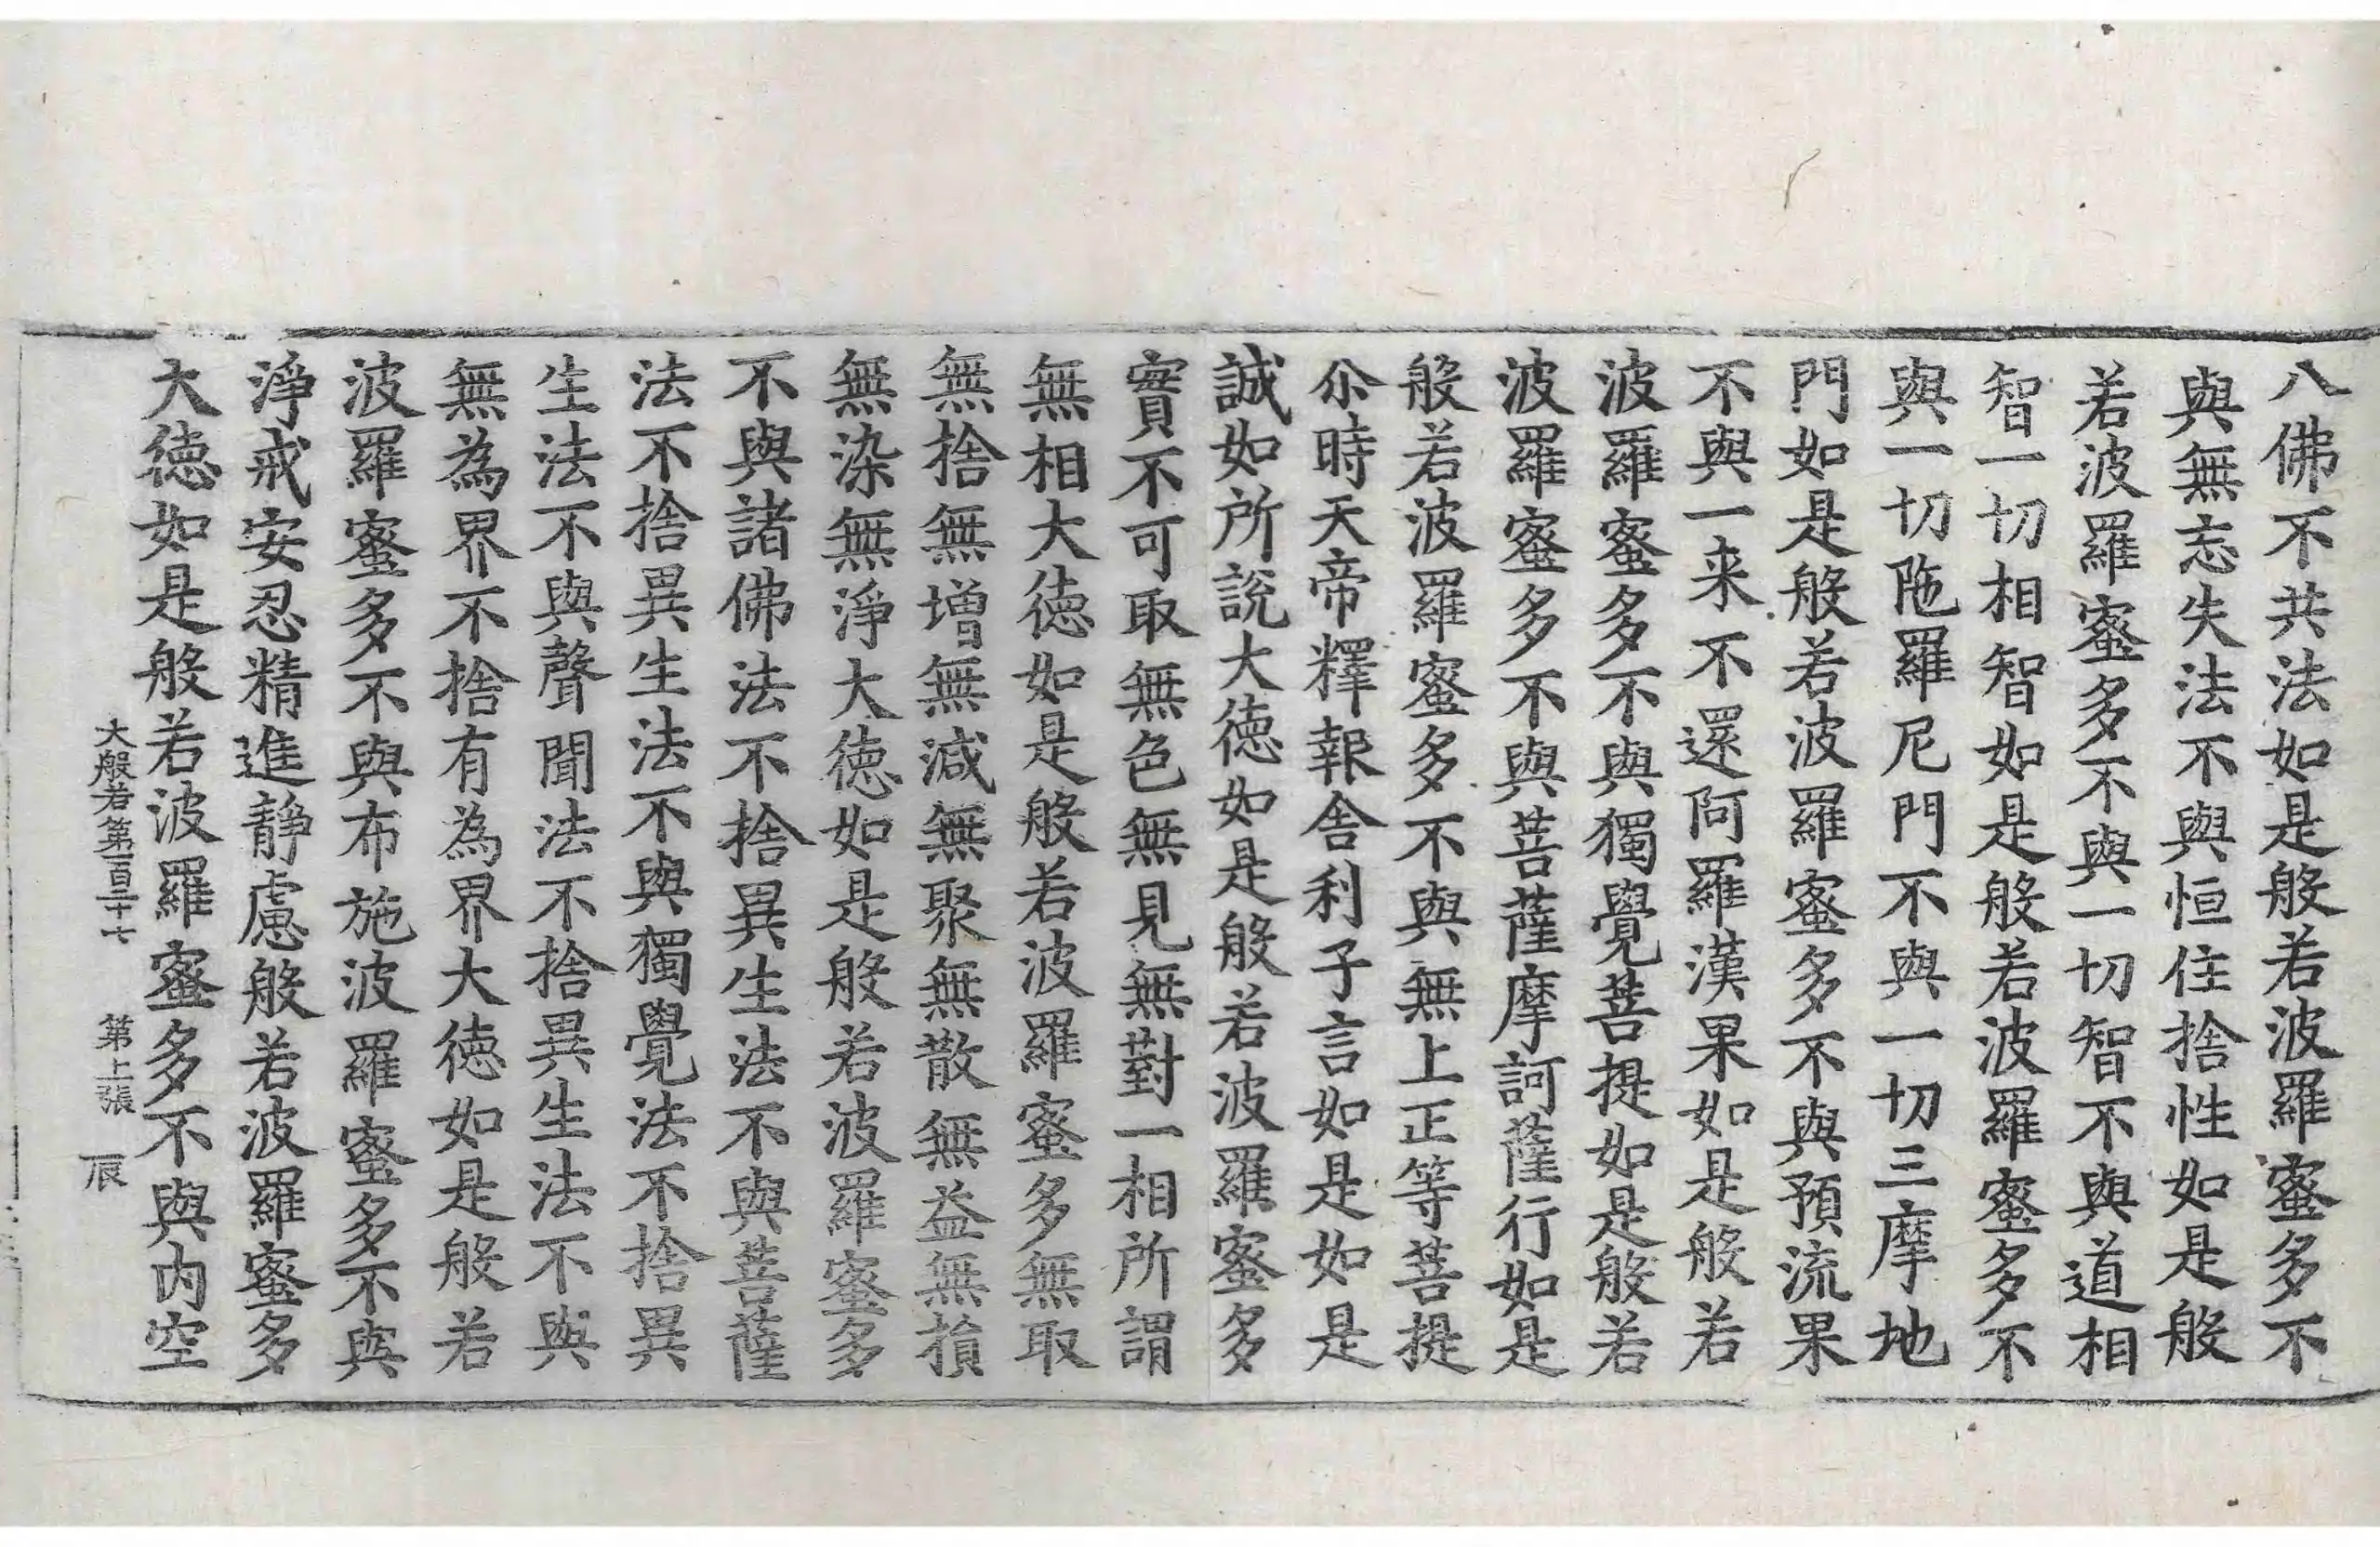 八佛不共法如是般若波羅蜜多不
與無忘失法不與恒住捨性如是般
若波羅蜜多不與一切智不與道相
智一切相智如是般若波羅蜜多不
與一切陁羅尼門不與一切三摩地
門如是般若波羅蜜多不與預流果
不與一来不還阿羅漢果如是般若
波羅蜜多不與獨覺菩提如是般若
波羅蜜多不與菩薩摩訶薩行如是
般若波羅蜜多不與無上正等菩提
尒時天帝釋報舍利子言如是如是
誠如所說大徳如是般若波羅蜜多
實不可取無色無見無對一相所謂
無相大徳如是般若波羅蜜多無取
無捨無增無減無聚無散無益無損
無染無淨大徳如是般若波羅蜜多
不與諸佛法不捨異生法不與菩薩
法不捨異生法不與獨覺法不捨異
生法不與聲聞法不捨異生法不與
無為界不捨有為界大徳如是般若
波羅蜜多不與布施波羅蜜多不與
淨戒安忍精進靜慮般若波羅蜜多
大徳如是般若波羅蜜多不與内空
大般若第一百二十七 第上張 辰